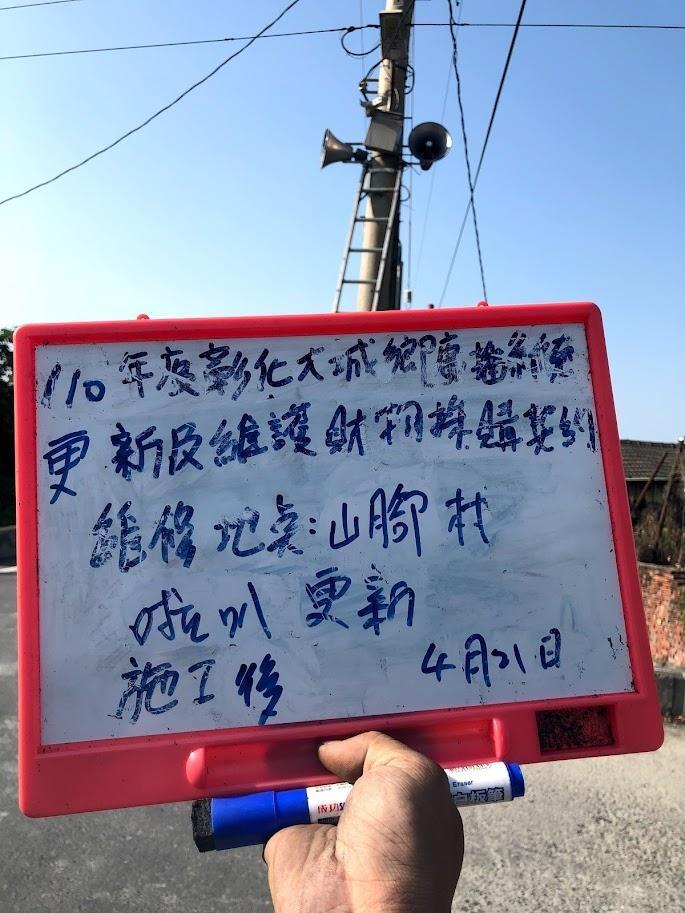 110 年度彰化大城鄉廣播系統
更新及維護財物採購契約
維修地點:山腳村
喇叭更新
施工後 4月21日
成功
Eraser
白板筆